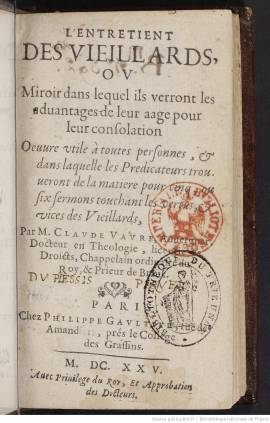 L'ENTRETIENT
DES VIEILLARDS,
OV
Miroir dans lequel ils verront les
aduantages de leur aage pour
leur consolation
Oeuure vtile à toutes personnes, &
dans laquelle les Predicateurs trou-
ueront de la matiere pour cinq ou
six sermons touchant les vertus &
vices des Vieillards,
Par M. CLAVDE
Docteur en Theologie,
Droicts, Chappelain ordin du
Roy, & Prieur de
DV PLESSIS
PARI
Chez PHILIPPE GAVLT
Amand prés le College
des Grassins.
M. DC. XXV.
Auec Priuilege du Roy, Et Approbation
des Docteurs.